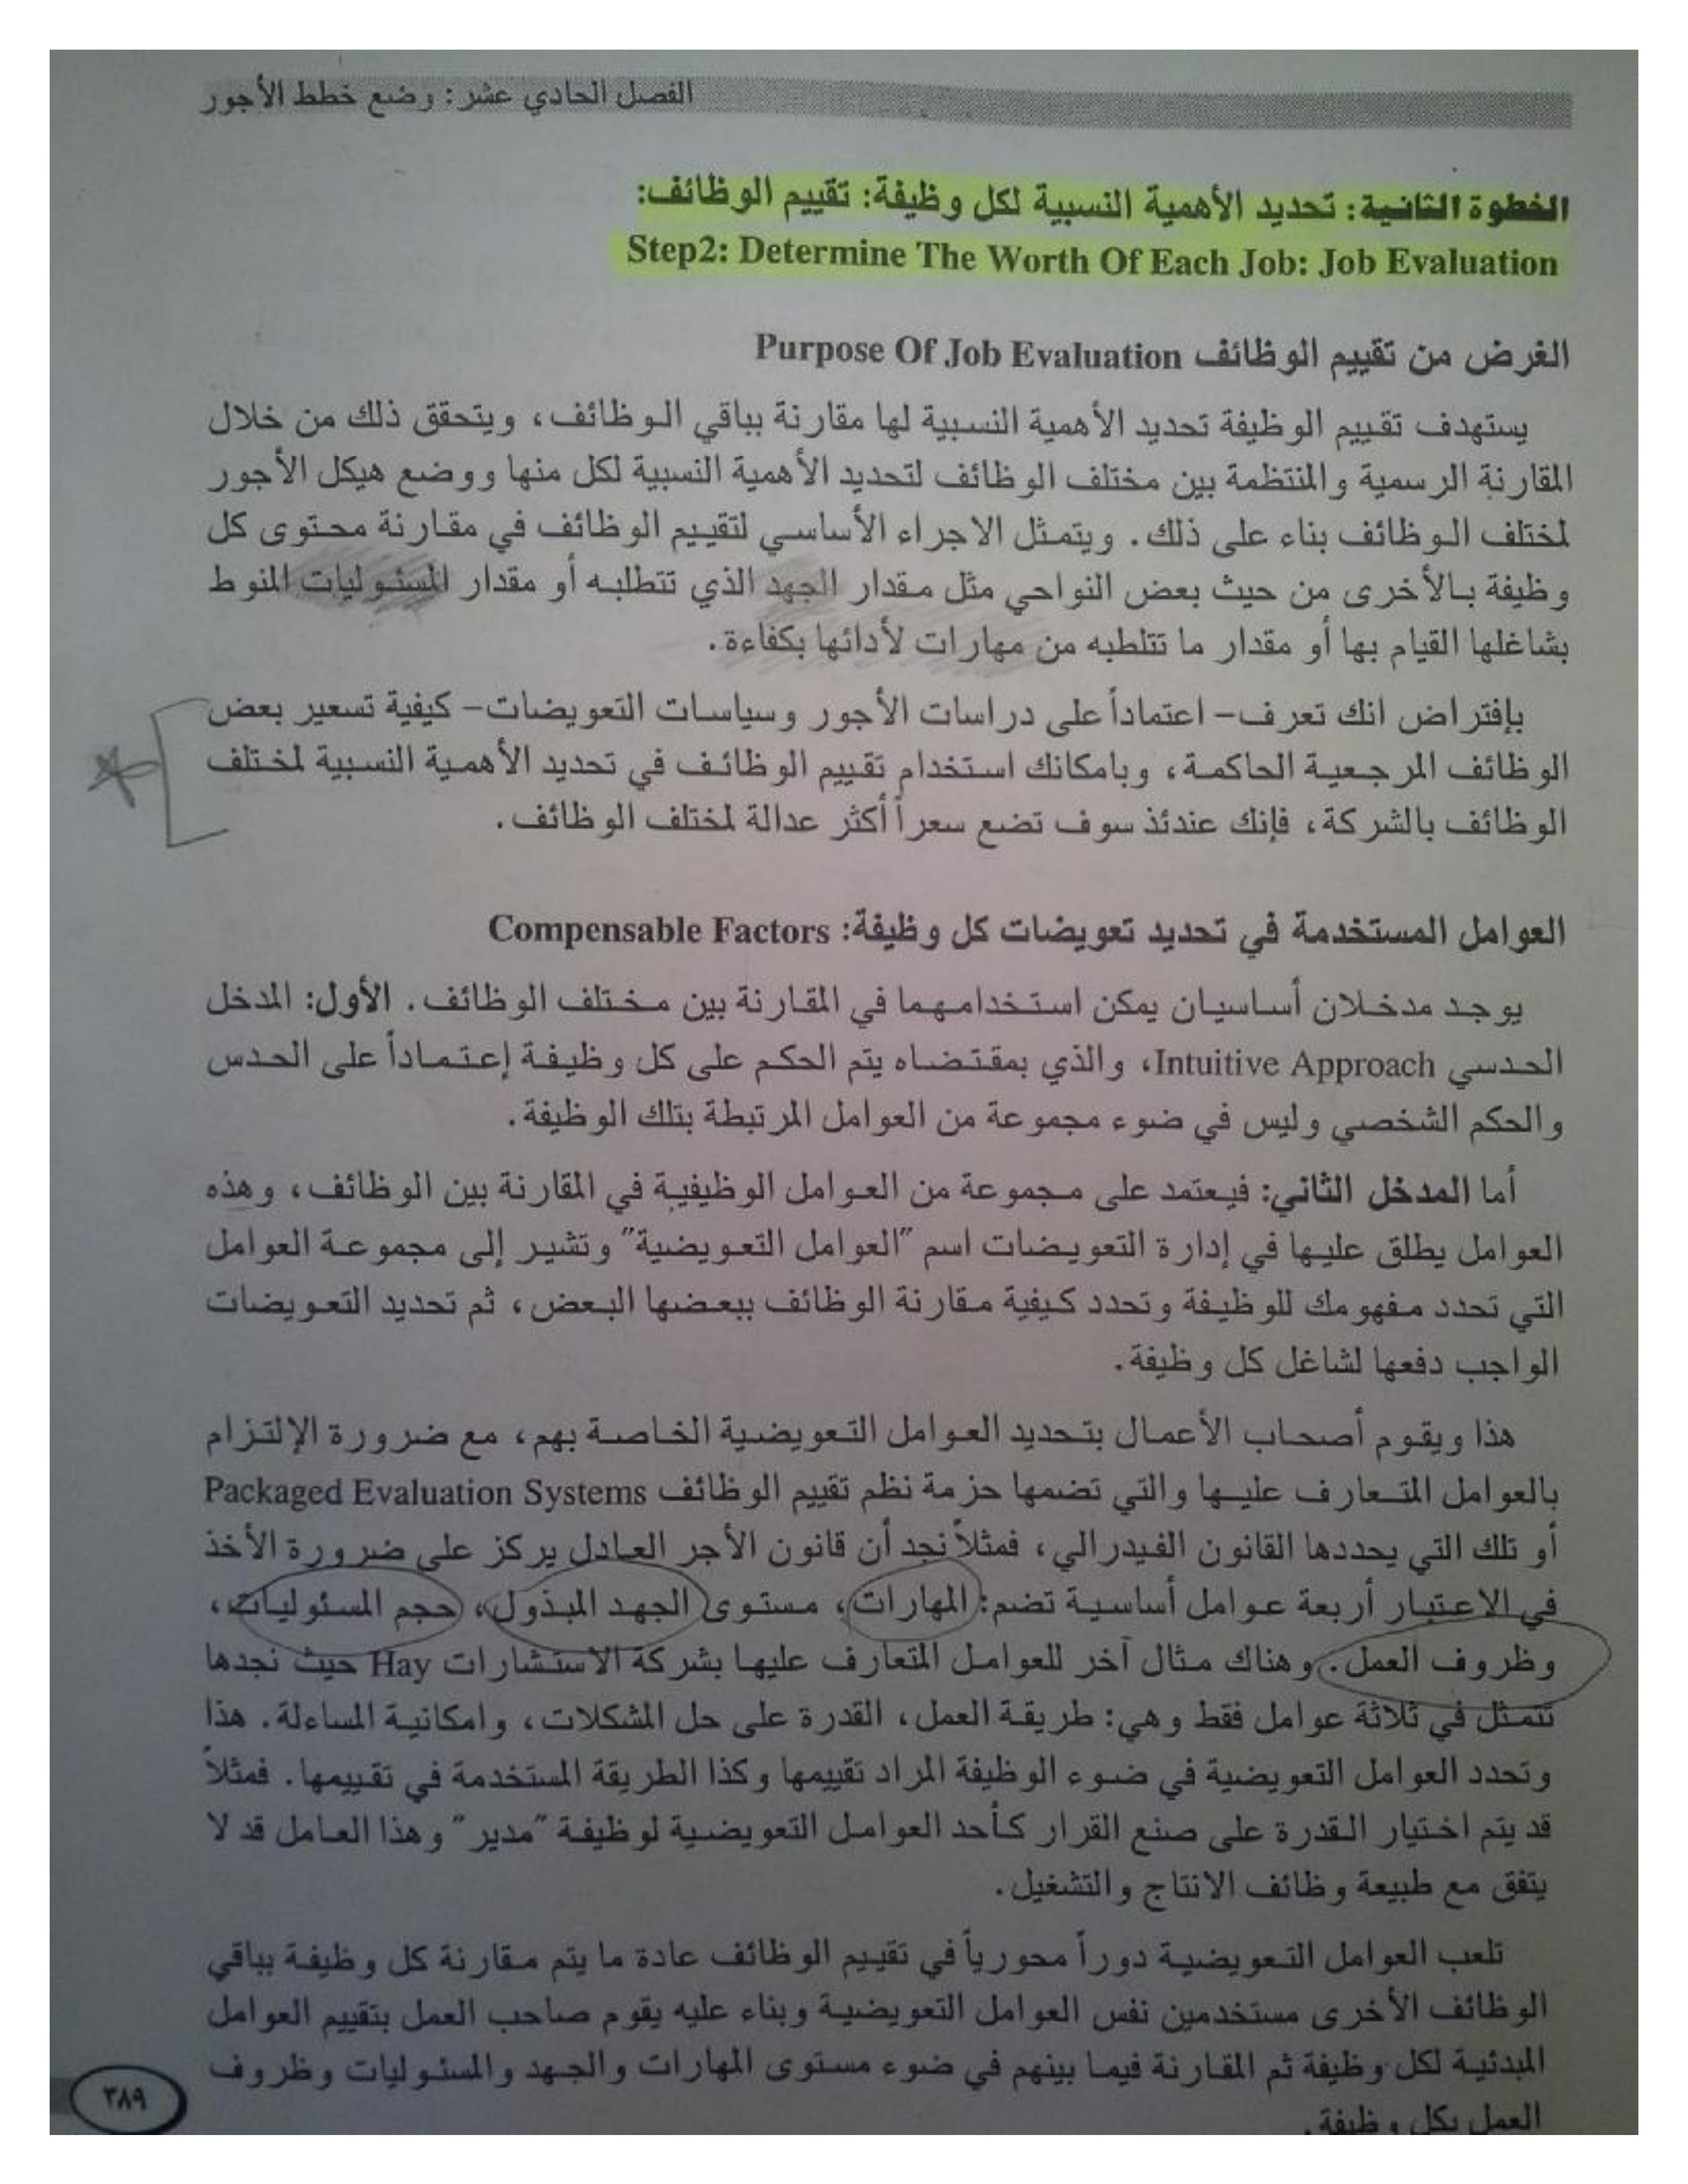 الفصل الحادي عشر: وضع خطط الأجور
الخطوة الثانية: تحديد الأهمية النسبية لكل وظيفة: تقييم الوظائف:
Step2: Determine The Worth Of Each Job: Job Evaluation
الغرض من تقييم الوظائف Purpose Of Job Evaluation
يستهدف تقييم الوظيفة تحديد الأهمية النسبية لها مقارنة بباقي الوظائف، ويتحقق ذلك من خلال
المقارنة الرسمية والمنتظمة بين مختلف الوظائف لتحديد الأهمية النسبية لكل منها ووضع هيكل الأجور
لمختلف الوظائف بناء على ذلك. ويتمثل الاجراء الأساسي لتقييم الوظائف في مقارنة محتوى كل
وظيفة بالأخرى من حيث بعض النواحي مثل مقدار الجهد الذي تتطلبه أو مقدار المسئوليات المنوط
بشاغلها القيام بها أو مقدار ما تتلطبه من مهارات لأدائها بكفاءة.
بإفتراض انك تعرف- اعتماداً على دراسات الأجور وسياسات التعويضات- كيفية تسعير بعض
الوظائف المرجعية الحاكمة، وبامكانك استخدام تقييم الوظائف في تحديد الأهمية النسبية لمختلف
الوظائف بالشركة، فإنك عندئذ سوف تضع سعراً أكثر عدالة لمختلف الوظائف.
العوامل المستخدمة في تحديد تعويضات كل وظيفة: Compensable Factors
يوجد مدخلان أساسيان يمكن استخدامهما في المقارنة بين مختلف الوظائف. الأول: المدخل
الحدسي Intuitive Approach، والذي بمقتضاه يتم الحكم على كل وظيفة إعتماداً على الحدس
والحكم الشخصي وليس في ضوء مجموعة من العوامل المرتبطة بتلك الوظيفة.
أما المدخل الثاني: فيعتمد على مجموعة من العوامل الوظيفية في المقارنة بين الوظائف، وهذه
العوامل يطلق عليها في إدارة التعويضات اسم "العوامل التعويضية" وتشير إلى مجموعة العوامل
التي تحدد مفهومك للوظيفة وتحدد كيفية مقارنة الوظائف ببعضها البعض، ثم تحديد التعويضات
الواجب دفعها لشاغل كل وظيفة.
هذا ويقوم أصحاب الأعمال بتحديد العوامل التعويضية الخاصة بهم، مع ضرورة الإلتزام
بالعوامل المتعارف عليها والتي تضمها حزمة نظم تقييم الوظائف Packaged Evaluation Systems
أو تلك التي يحددها القانون الفيدرالي، فمثلاً نجد أن قانون الأجر العادل يركز على ضرورة الأخذ
في الاعتبار أربعة عوامل أساسية تضم: المهارات، مستوى الجهد المبذول، حجم المسئوليات،
وظروف العمل. وهناك مثال آخر للعوامل المتعارف عليها بشركة الاستشارات Hay حيث نجدها
تتمثل في ثلاثة عوامل فقط وهي: طريقة العمل، القدرة على حل المشكلات، وامكانية المساءلة. هذا
وتحدد العوامل التعويضية في ضوء الوظيفة المراد تقييمها وكذا الطريقة المستخدمة في تقييمها. فمثلاً
قد يتم اختيار القدرة على صنع القرار كأحد العوامل التعويضية لوظيفة "مدير" وهذا العامل قد لا
يتفق مع طبيعة وظائف الانتاج والتشغيل.
تلعب العوامل التعويضية دوراً محورياً في تقييم الوظائف عادة ما يتم مقارنة كل وظيفة بباقي
الوظائف الأخرى مستخدمين نفس العوامل التعويضية وبناء عليه يقوم صاحب العمل بتقييم العوامل
المبدئية لكل وظيفة ثم المقارنة فيما بينهم في ضوء مستوى المهارات والجهد والمسئوليات وظروف
العمل بكل وظيفة.
٣٨٩